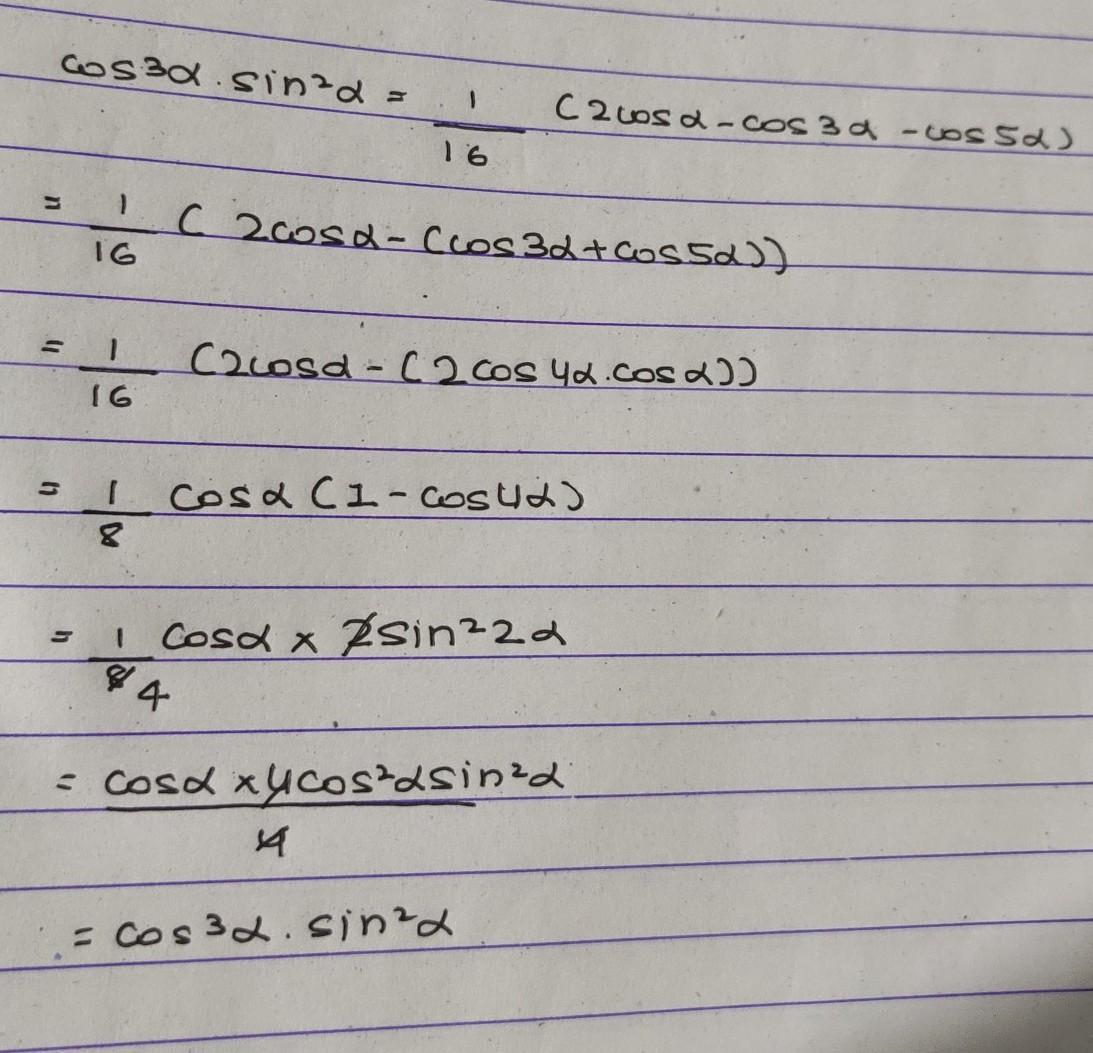 cos³α . sin²α = 1/16 (2cosα - cos3α - cos5α)
= 1/16 ( 2cosα - (cos3α + cos5α))
= 1/16 (2cosα - (2cos4α.cosα))
= 1/8 cosα (1 - cos4α)
= 1/8 4 cosα × 2sin²2α
= cosα × 4cos²αsin²α / 4
= cos³α . sin²α